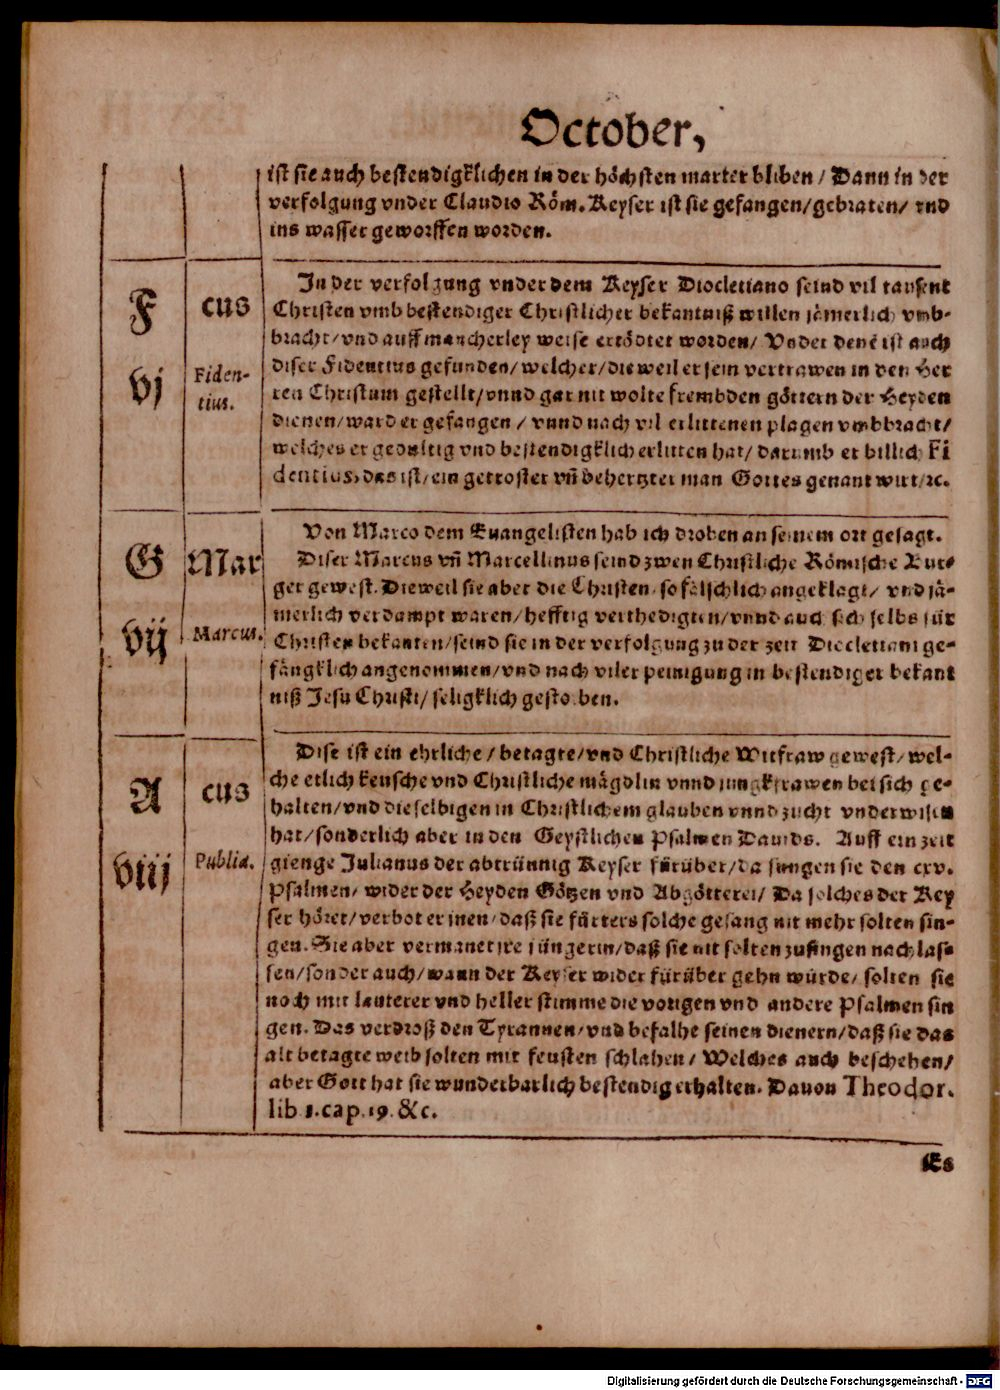 October,
ist sie auch bestendigklichen in der höchsten marter bliben / Dann in der
verfolgung vnder Claudio Röm. Keyser ist sie gefangen / gebraten / vnd
ins wasser geworffen worden.
F
vj
cus
Fiden-
tius.
In der verfolgung vnder dem Keyser Diocletiano seind vil tausent
Christen vmb bestendiger Christlicher bekantniß willen jämerlich vmb-
bracht / vnd auff mancherley weise ertödtet worden / Vnder denē ist auch
diser Fidentius gefunden / welcher / die weil er sein vertrawen in den Her
ren Christum gestellt / vnnd gar nit wolte frembden göttern der Heyden
dienen / ward er gefangen / vnnd nach vil erlittenen plagen vmbbracht /
welches er gedultig vnd bestendigklich erlitten hat / darumb er billich Fi
dentius, das ist / ein getroster vñ behertzter man Gottes genant wirt / ꝛc.
G
vij
Mar
Marcus.
Von Marco dem Euangelisten hab ich droben an seinem ort gesagt.
Diser Marcus vñ Marcellinus seind zwen Christliche Römische Bur-
ger gewest. Dieweil sie aber die Christen / so fälschlich angeklagt / vnd jä-
merlich verdampt waren / hefftig verthedigten / vnnd auch sich selbs für
Christen bekanten / seind sie in der verfolgung zu der zeit Diocletiani ge-
fängklich angenommen / vnd nach viler peinigung in bestendiger bekant
niß Jesu Christi / seligklich gestorben.
A
viij
cus
Publia.
Dise ist ein ehrliche / betagte / vnd Christliche Witfraw gewest / wel-
che etlich keusche vnd Christliche mägdlin vnnd jungkfrawen bei sich ge-
halten / vnd dieselbigen in Christlichem glauben vnnd zucht vnderwisen
hat / sonderlich aber in den Geystlichen Psalmen Dauids. Auff ein zeit
gienge Julianus der abtrünnig Keyser fürüber / da sungen sie den cxv.
Psalmen / wider der Heyden Götzen vnd Abgötterei / Da solches der Key
ser höret / verbot er jnen / daß sie fürters solche gesang nit mehr solten sin-
gen. Sie aber vermanet jre jüngerin / daß sie nit solten zusingen nachlas-
sen / sonder auch / wann der Keyser wider fürüber gehn würde / solten sie
noch mit lauterer vnd heller stimme die vorigen vnd andere Psalmen sin
gen. Das verdroß den Tyrannen / vnd befalhe seinen dienern / daß sie das
alt betagte weib solten mit feusten schlahen / Welches auch beschehen /
aber Gott hat sie wunderbarlich bestendig erhalten. Dauon Theodor.
lib 1. cap. 19. &c.
Es
Digitalisierung gefördert durch die Deutsche Forschungsgemeinschaft - DFG